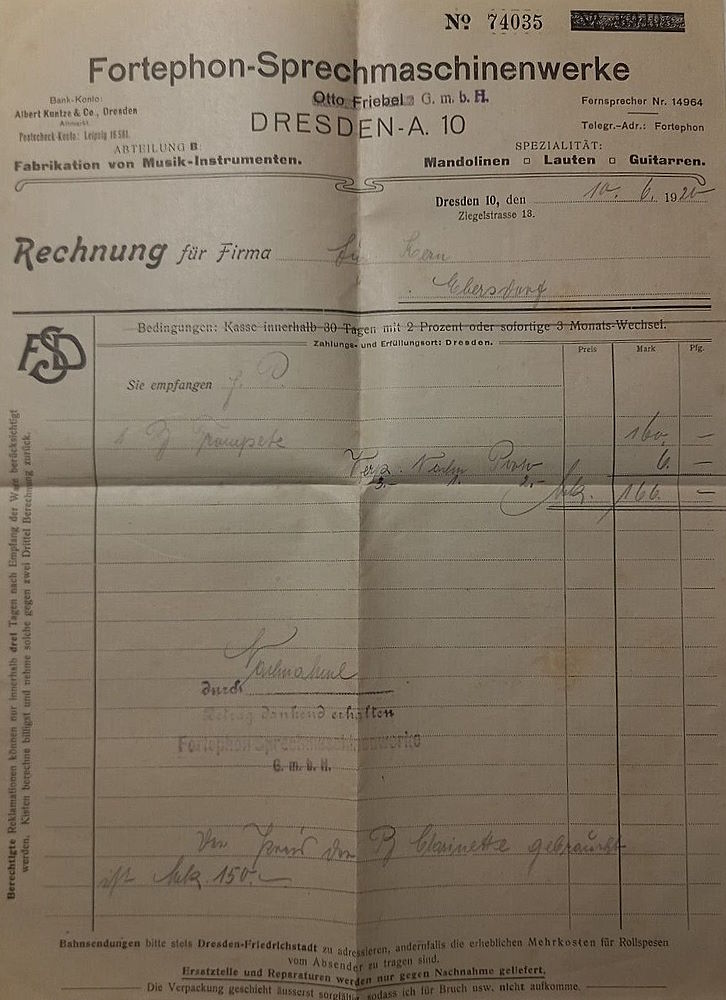 No 74035
Fortephon-Sprechmaschinenwerke
Otto Friebel G. m. b. H.
DRESDEN-A. 10
Bank-Konto:
Albert Kuntze & Co., Dresden
Altmarkt.
Postscheck-Konto: Leipzig
ABTEILUNG B:
Fabrikation von Musik-Instrumenten.
Fernsprecher Nr. 14964
Telegr.-Adr.: Fortephon
SPEZIALITÄT:
Mandolinen Lauten Guitarren.
Dresden 10, den 10. 6. 1920
Ziegelstrasse 13.
Rechnung für Firma Kern
Ebersdorf
Bedingungen: Kasse innerhalb 30 Tagen mit 2 Prozent oder sofortige 3 Monats-Wechsel.
Zahlungs- und Erfüllungsort: Dresden.
Preis Mark Pfg.
FSD
Sie empfangen
1 B Trompete 160. –
Verp. Nachn. Porto 6. –
3.- 1. 2.-
Mk. 166. –
Nachnahme
durch
Betrag dankend erhalten
Fortephon-Sprechmaschinenwerke
G. m. b. H.
Der Preis der B Clarinette gebraucht
ist Mk. 150.–
Berechtigte Reklamationen können nur innerhalb drei Tagen nach Empfang der Ware berücksichtigt
werden. Kisten berechne billigst und nehme solche gegen zwei Drittel Berechnung zurück.
Bahnsendungen bitte stets Dresden-Friedrichstadt zu adressieren, andernfalls die erheblichen Mehrkosten für Rollspesen
vom Absender zu tragen sind.
Ersatzteile und Reparaturen werden nur gegen Nachnahme geliefert.
Die Verpackung geschieht äusserst sorgfältig, sodass ich für Bruch usw. nicht aufkomme.